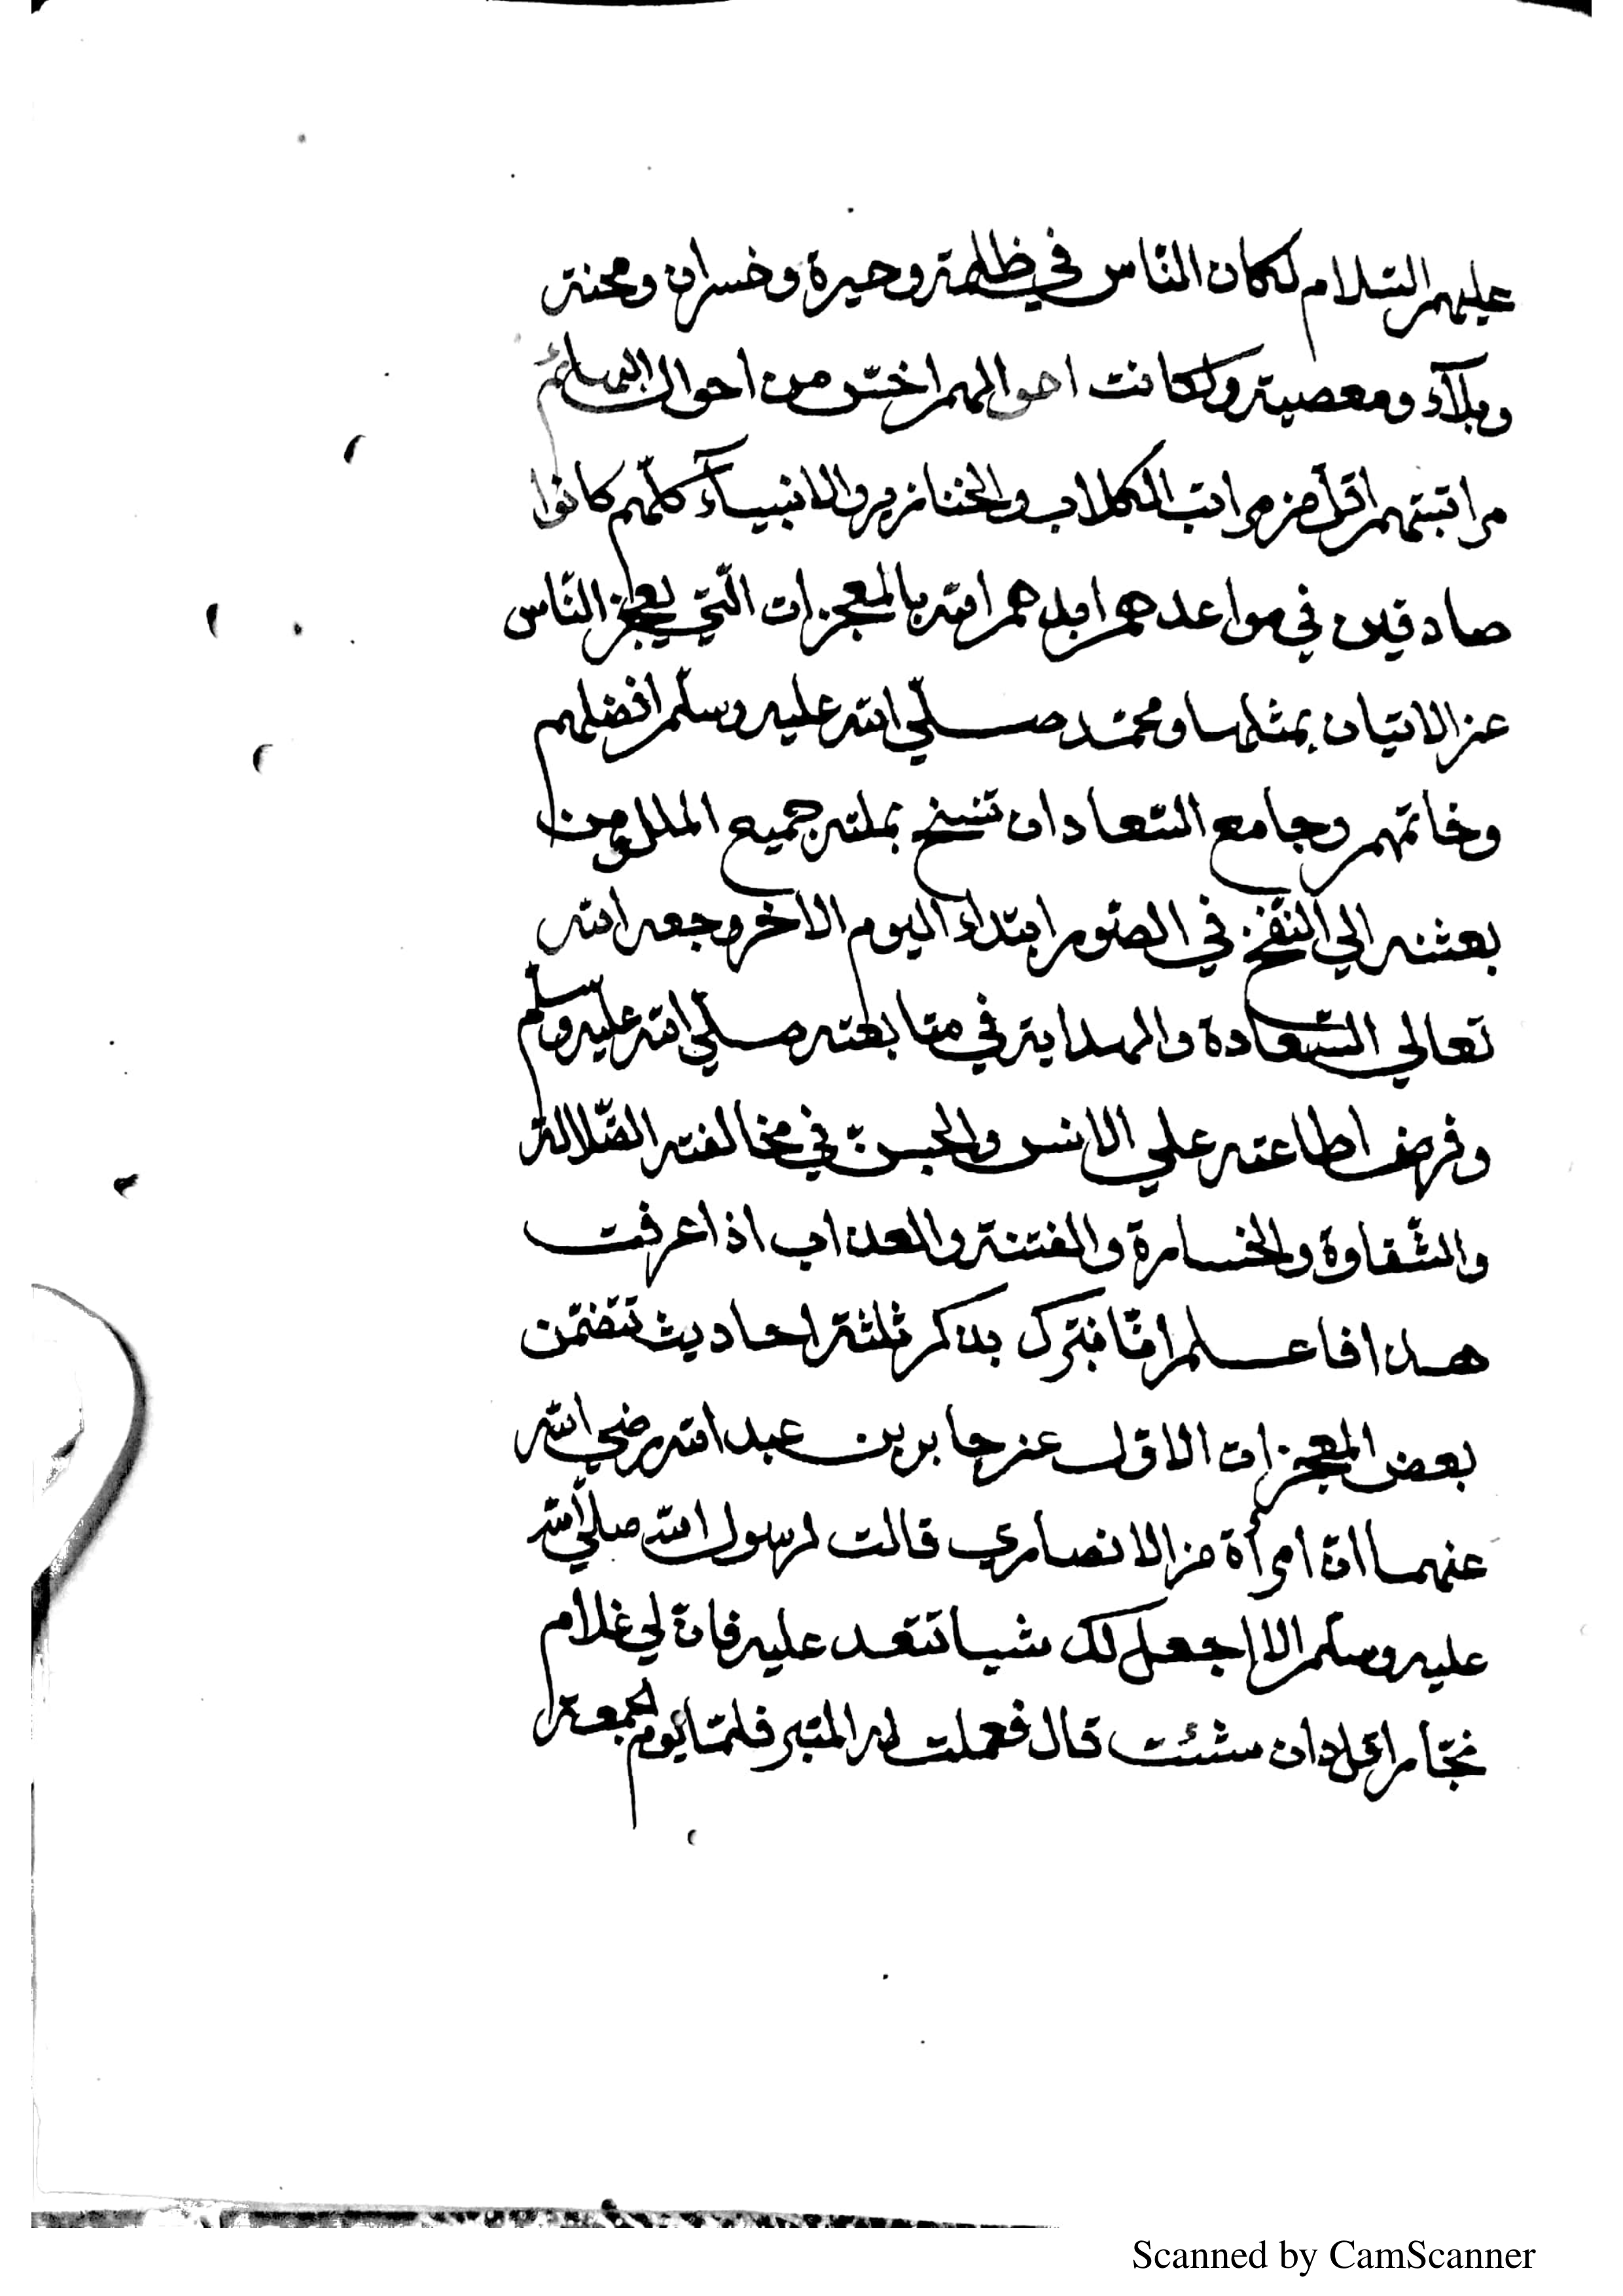 عليهم السّلام لكان النّاس في ظلمة وحيرة وخسران ومحنة
وبلآء ومعصية ولكانت احوالهم اخسّ من احوال البهائم
مراتبتهم اقلّ من مراتب الكلاب والخنازير والانبيآء كلّهم كانوا
صادقين في مواعدهم ايدهم الله بالمعجزات الّتي يعجز النّاس
عن الاتيان بمثلها ومحمّد صلّي الله عليه وسلّم افضلهم
وخاتمهم وجامع السّعادات تنسخ بملته جميع الملل ومن
بعثنه الي النّفخ في الصّور ابتداء اليوم الاخر وجعل الله
تعالي السّعادة والهداية في متابعته صلّي الله عليه وسلّم
وفرض اطاعته علي الانس والجنّ في مخالفته الضّلالة
والشّقاوة والخسارة والفتنة والعذاب اذا عرفت
هذا فاعلم انّا نبترك بذكر ثلثة احاديث تتضمّن
بعض المعجزات الاوّل عن جابر بن عبد الله رضي الله
عنهما انّ امرأة من الانصاري قالت لرسول الله صلّي الله
عليه وسلّم الا اجعل لك شيا تقعد عليه فانّ لي غلام
نجّارا قال ان شئت قال فعملت له المنبر فلمّا يوم الجمعة
Scanned by CamScanner